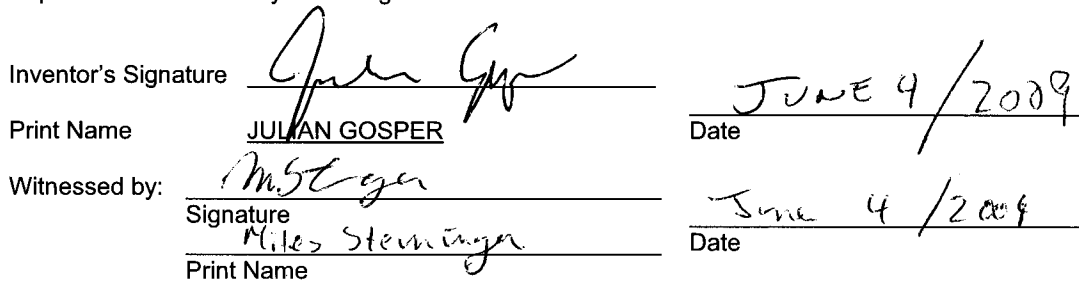 Inventor's Signature JUNE 4/2009
Print Name JULIAN GOSPER Date
Witnessed by: June 4/2009
Signature
Miles Steininger Date
Print Name